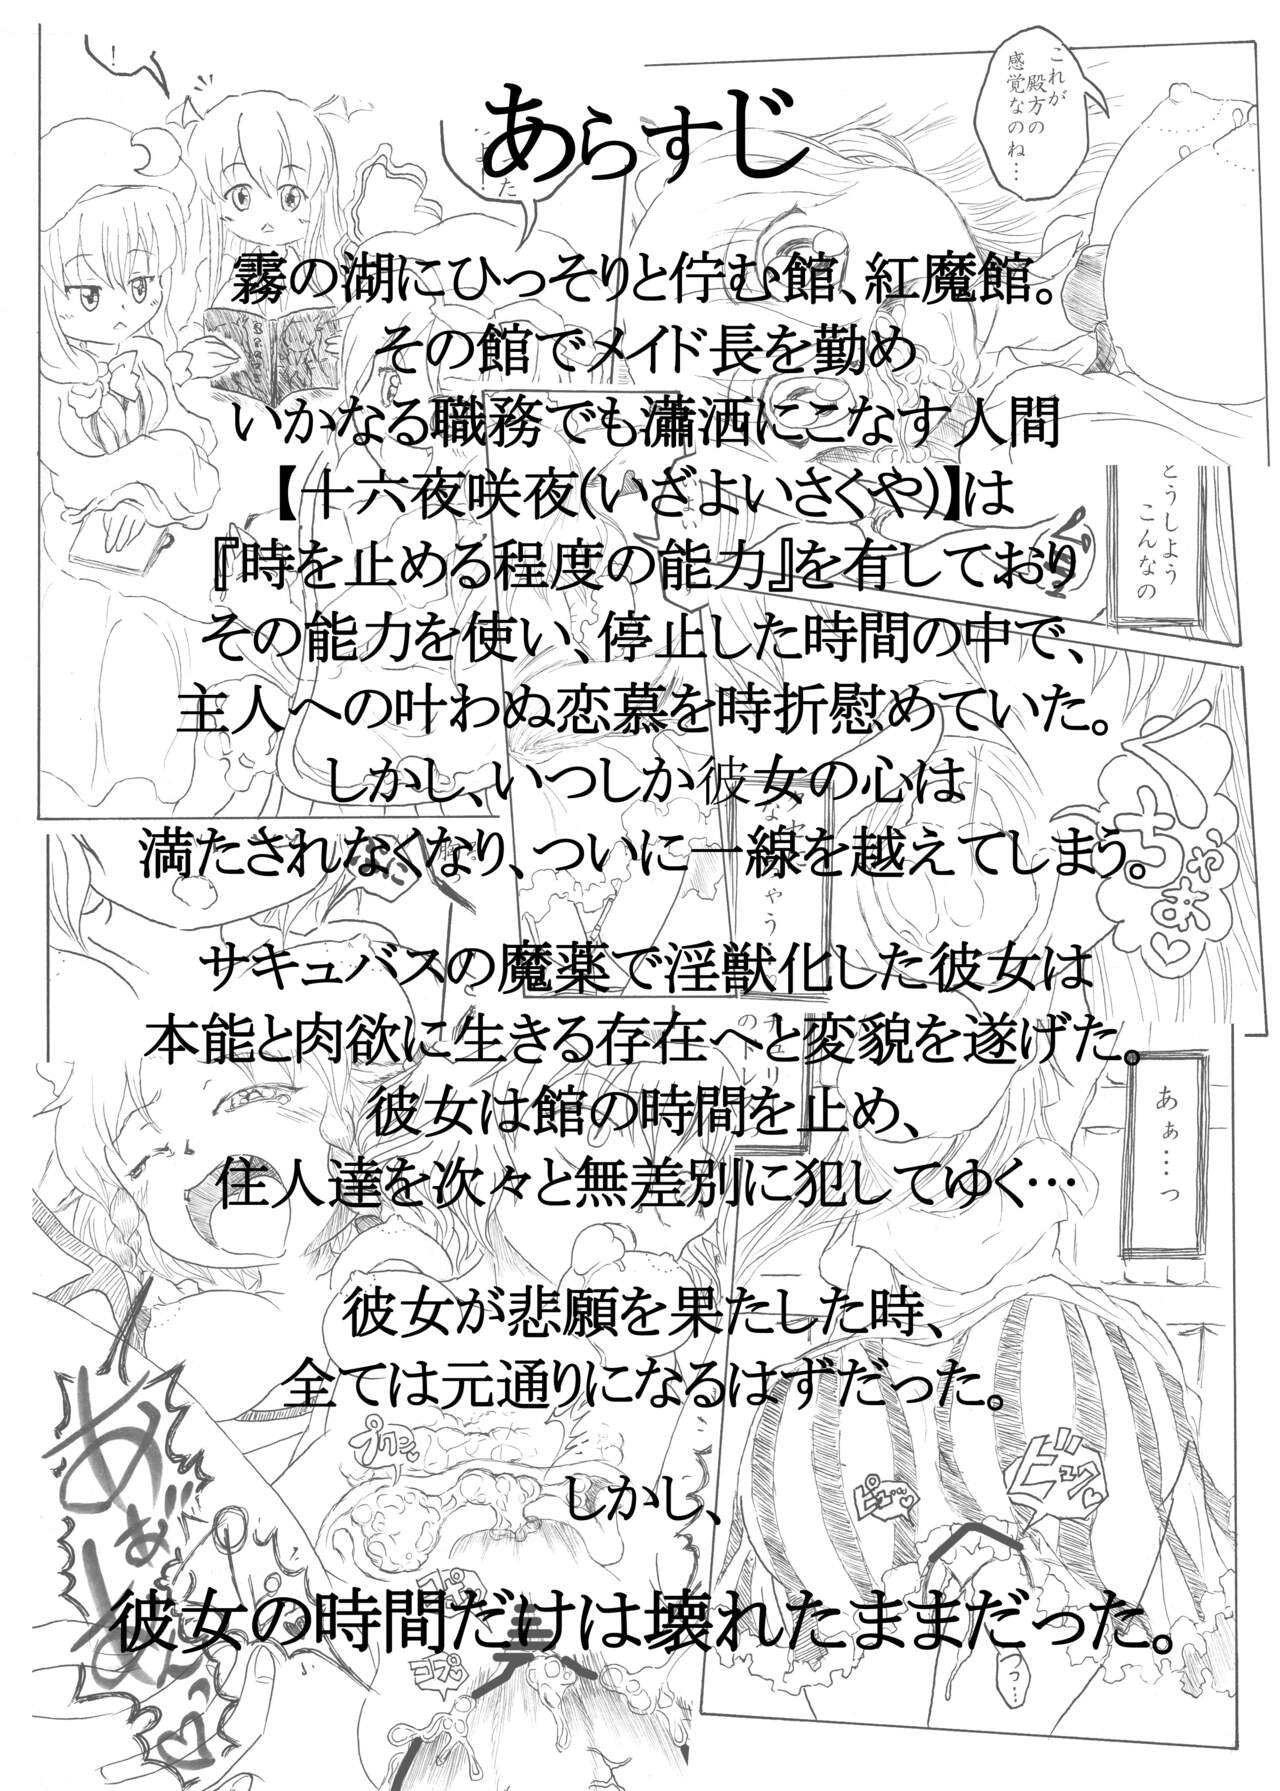 あらすじ
霧の湖にひっそりと佇む館、紅魔館。
その館でメイド長を勤め
いかなる職務でも瀟洒にこなす人間
【十六夜咲夜(いざよいさくや)】は
『時を止める程度の能力』を有しており
その能力を使い、停止した時間の中で、
主人への叶わぬ恋慕を時折慰めていた。
しかし、いつしか彼女の心は
満たされなくなり、ついに一線を越えてしまう。
サキュバスの魔薬で淫獣化した彼女は
本能と肉欲に生きる存在へと変貌を遂げた。
彼女は館の時間を止め、
住人達を次々と無差別に犯してゆく…
彼女が悲願を果たした時、
全ては元通りになるはずだった。
しかし、
彼女の時間だけは壊れたままだった。
これが
殿方の
感覚なのね…
どうしよう
こんなの
くちゃぁ♡
あぁ…っ
プクン
ビュッ♡
ビュク♡
コプ♡
っ…